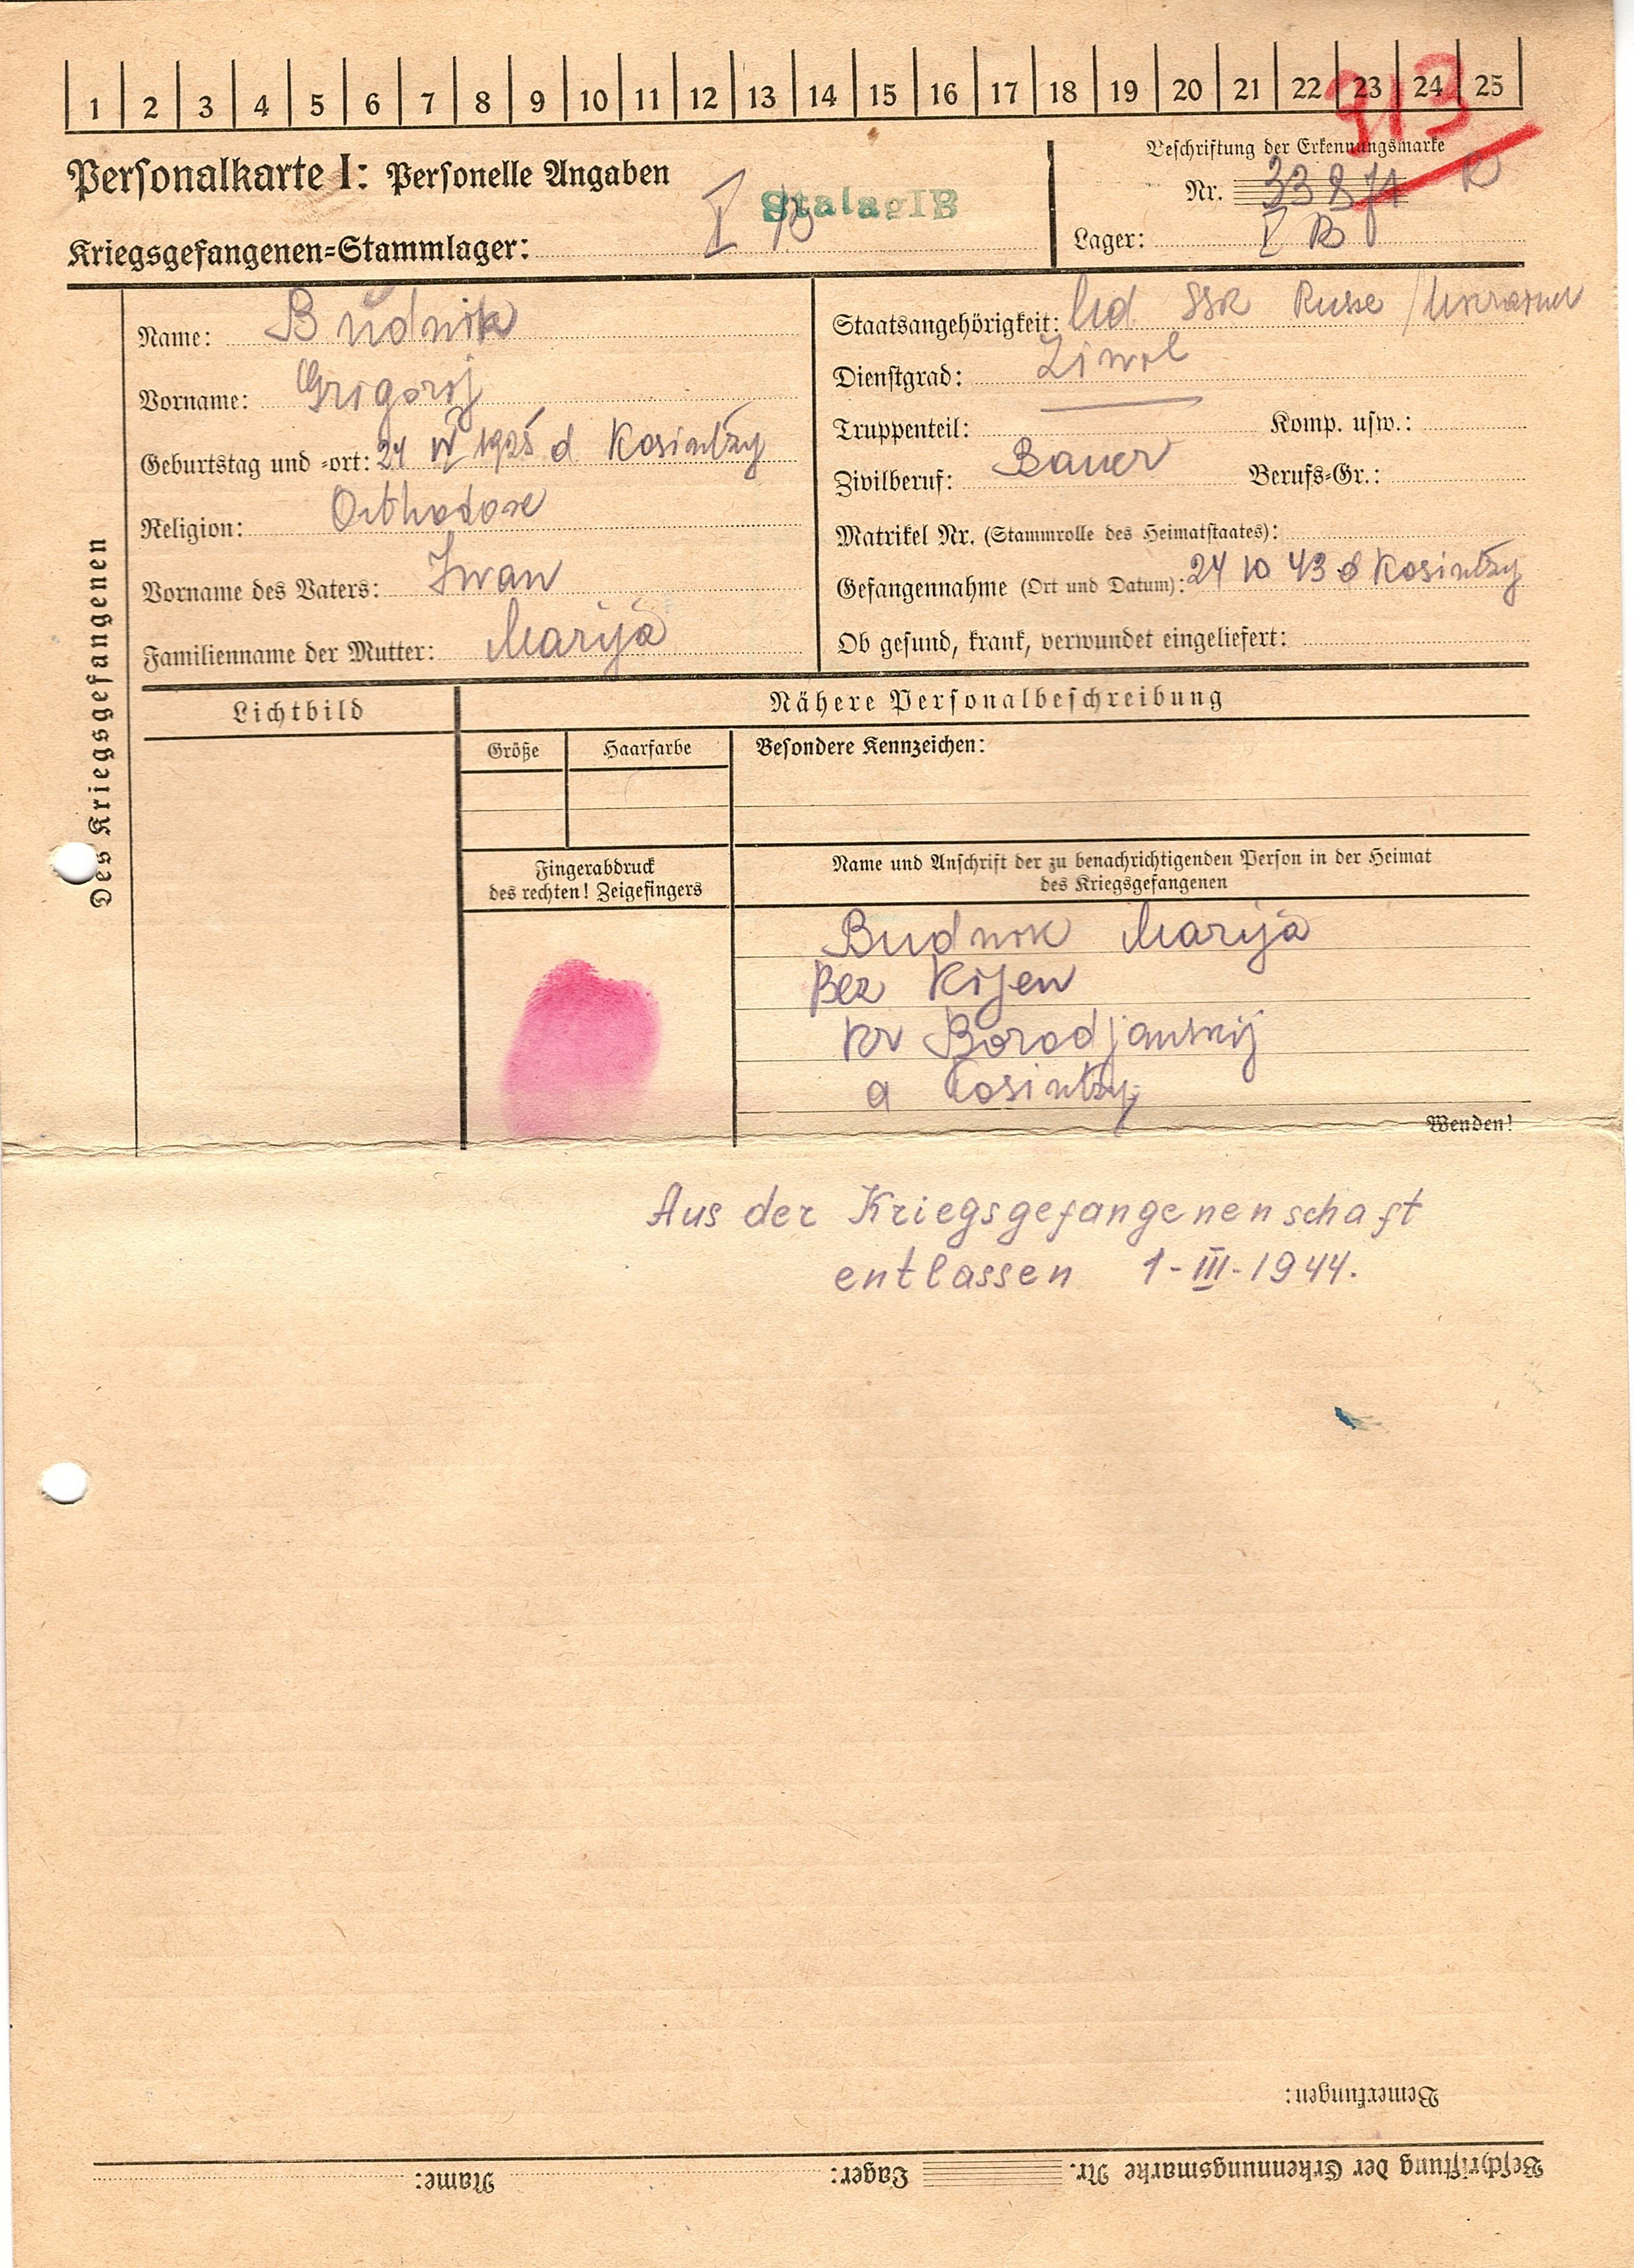 1 2 3 4 5 6 7 8 9 10 11 12 13 14 15 16 17 18 19 20 21 22 23 24 25
913
Personalkarte I: Personelle Angaben
Beschriftung der Erkennungsmarke
Nr. 33874 R
Stalag IB
Kriegsgefangenen-Stammlager: I B
Lager: I B
Des Kriegsgefangenen
Name: Budnik
Vorname: Grigorij
Geburtstag und -ort: 24 IV 1925 d Kosintzy
Religion: Orthodoxe
Vorname des Vaters: Iwan
Familienname der Mutter: Marija
Staatsangehörigkeit: Ud SSR Russe /
Dienstgrad: Ziwil
Truppenteil: Komp. usw.:
Zivilberuf: Bauer Berufs-Gr.:
Matrikel Nr. (Stammrolle des Heimatstaates):
Gefangennahme (Ort und Datum): 24 10 43 d Kosintzy
Ob gesund, krank, verwundet eingeliefert:
Lichtbild
Nähere Personalbeschreibung
Größe
Haarfarbe
Besondere Kennzeichen:
Fingerabdruck
des rechten! Zeigefingers
Name und Anschrift der zu benachrichtigenden Person in der Heimat
des Kriegsgefangenen
Budnik Marija
Bez Kijew
Kr Borodjanskij
d Kosintzy
Wenden!
Aus der Kriegsgefangenenschaft
entlassen 1-III-1944.
Bemerkungen:
Beschriftung der Erkennungsmarke Nr. Lager: Name: